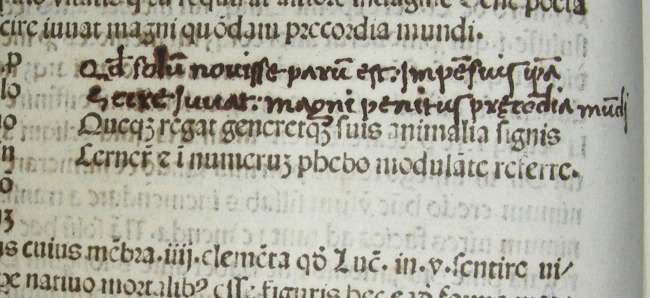 scire iuvat magni quōdam precordia mundi.
p Qđ solum novisse parum est: impensius ipā
lo Scire Juvat: magni penitus pręcordia mūdi
Queqꝫ regat generetqꝫ suis animalia signis
n Cerner̄ & ī numeruꝫ phebo modulāte referre.
ō
ꝫ
us cuius mēbra .iiij. elemēta qđ Luc̄. in .v. sentire ui/
natiuo mortalibꝰ